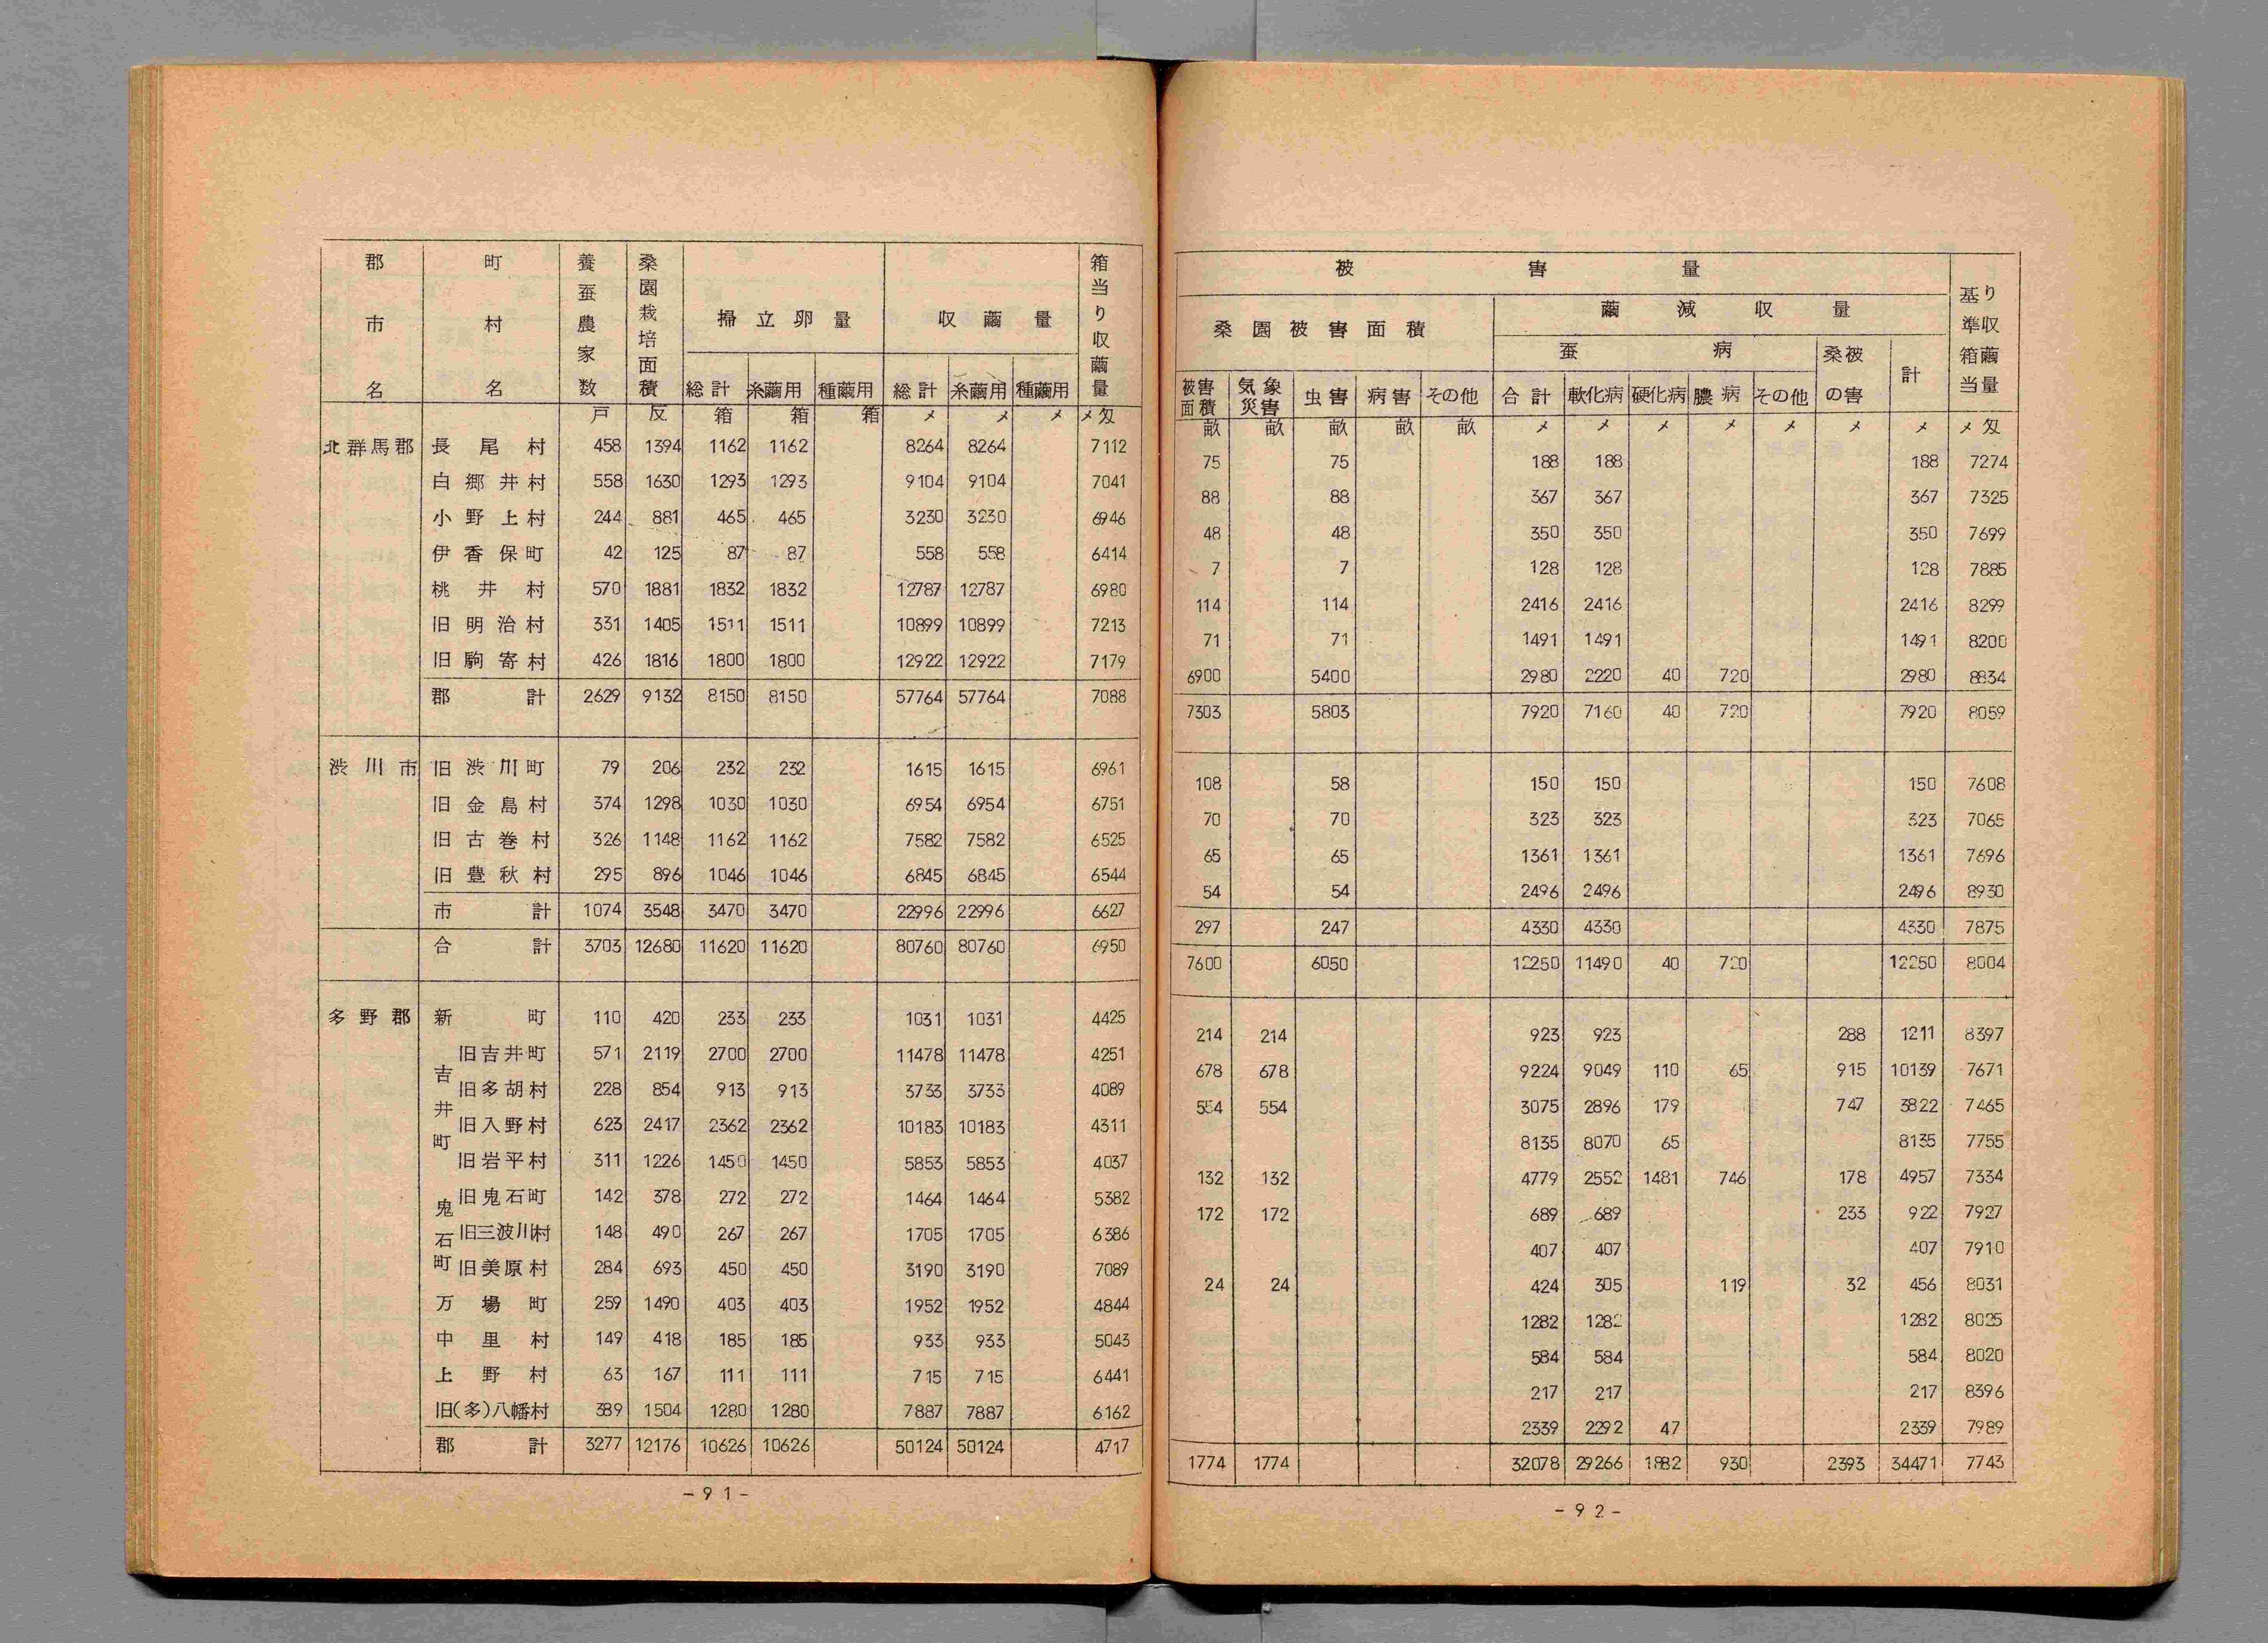 郡市名 町村名 養蚕農家数 桑園栽培面積 掃立卵量 収繭量 箱当り収繭量
総計 糸繭用 種繭用 総計 糸繭用 種繭用
戸 反 箱 箱 箱 メ メ メ メ匁
北群馬郡 長尾村 458 1394 1162 1162 8264 8264 7112
白郷井村 558 1630 1293 1293 9104 9104 7041
小野上村 244 881 465 465 3230 3230 6946
伊香保町 42 125 87 87 558 558 6414
桃井村 570 1881 1832 1832 12787 12787 6980
旧明治村 331 1405 1511 1511 10899 10899 7213
旧駒寄村 426 1816 1800 1800 12922 12922 7179
郡計 2629 9132 8150 8150 57764 57764 7088
渋川市 旧渋川町 79 206 232 232 1615 1615 6961
旧金島村 374 1298 1030 1030 6954 6954 6751
旧古巻村 326 1148 1162 1162 7582 7582 6525
旧豊秋村 295 896 1046 1046 6845 6845 6544
市計 1074 3548 3470 3470 22996 22996 6627
合計 3703 12680 11620 11620 80760 80760 6950
多野郡 新町 110 420 233 233 1031 1031 4425
吉井町 旧吉井町 571 2119 2700 2700 11478 11478 4251
旧多胡村 228 854 913 913 3733 3733 4089
旧入野村 623 2417 2362 2362 10183 10183 4311
旧岩平村 311 1226 1450 1450 5853 5853 4037
鬼石町 旧鬼石町 142 378 272 272 1464 1464 5382
旧三波川村 148 490 267 267 1705 1705 6386
旧美原村 284 693 450 450 3190 3190 7089
万場町 259 1490 403 403 1952 1952 4844
中里村 149 418 185 185 933 933 5043
上野村 63 167 111 111 715 715 6441
旧(多)八幡村 389 1504 1280 1280 7887 7887 6162
郡計 3277 12176 10626 10626 50124 50124 4717
-91-
被害量 基準箱当り収繭量
桑園被害面積 繭減収量
蚕病 桑被の害 計
被害面積 気象災害 虫害 病害 その他 合計 軟化病 硬化病 膿病 その他
畝 畝 畝 畝 畝 メ メ メ メ メ メ メ メ匁
75 75 188 188 188 7274
88 88 367 367 367 7325
48 48 350 350 350 7699
7 7 128 128 128 7885
114 114 2416 2416 2416 8299
71 71 1491 1491 1491 8200
6900 5400 2980 2220 40 720 2980 8834
7303 5803 7920 7160 40 720 7920 8059
108 58 150 150 150 7608
70 70 323 323 323 7065
65 65 1361 1361 1361 7696
54 54 2496 2496 2496 8930
297 247 4330 4330 4330 7875
7600 6050 12250 11490 40 720 12250 8004
214 214 923 923 288 1211 8397
678 678 9224 9049 110 65 915 10139 7671
554 554 3075 2896 179 747 3822 7465
8135 8070 65 8135 7755
132 132 4779 2552 1481 746 178 4957 7334
172 172 689 689 233 922 7927
407 407 407 7910
24 24 424 305 119 32 456 8031
1282 1282 1282 8025
584 584 584 8020
217 217 217 8396
2339 2292 47 2339 7989
1774 1774 32078 29266 1882 930 2393 34471 7743
-92-